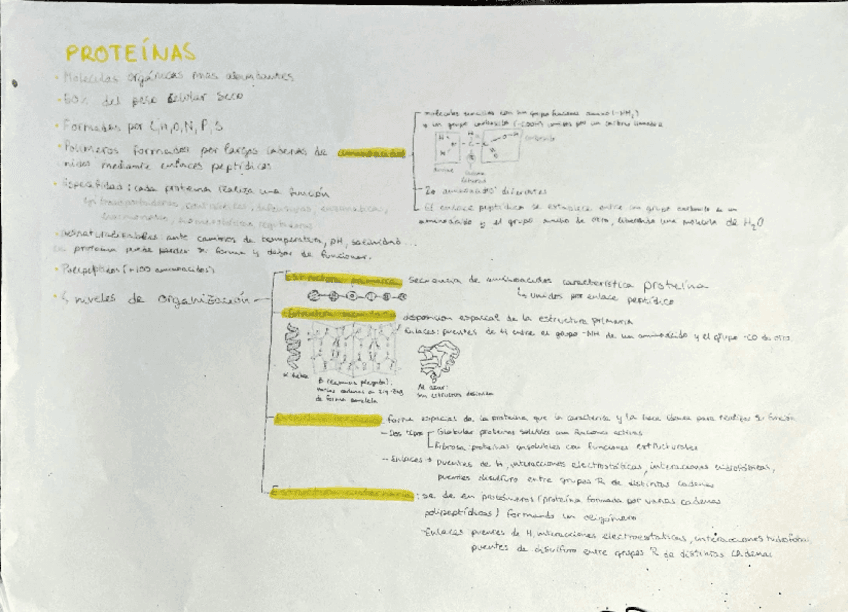 PROTEÍNAS
· Moléculas orgánicas más abundantes
· 50% del peso celular seco
· Formadas por C, H, O, N, P, S
· Polímeros formados por largas cadenas de aminoácidos
nidos mediante enlaces peptídicos
moléculas sencillas con un grupo funcional amino (-NH₂)
y un grupo carboxilo (-COOH) unidos por un carbono
20 aminoácidos diferentes
El enlace peptídico se establece entre un grupo carboxilo de un
aminoácido y el grupo amino de otro, liberando una molécula de H₂O
· Especifidad: cada proteína realiza una función
ante cambios de temperatura, pH, salinidad...
proteína puede perder su forma y dejar de funcionar.
(+100 aminoácidos)
· 4 niveles de organización
Estructura primaria secuencia de aminoácidos característica proteína
↳ unidos por enlace peptídico
Estructura secundaria disposición espacial de la estructura primaria
Enlaces: puentes de H entre el grupo -NH de un aminoácido y el grupo -CO de otro
α hélice
β (lámina plegada):
varias cadenas en zig-zag
de forma paralela
Al azar:
sin estructura definida
forma espacial de la proteína que la caracteriza y la hace idónea para realizar su función
- Dos tipos
Globular proteínas solubles con funciones activas
Fibrosa proteínas insolubles con funciones estructurales
- Enlaces → puentes de H, interacciones electrostáticas, interacciones hidrofóbicas,
puentes disulfuro entre grupos R de distintas cadenas
Estructura cuaternaria: se da en (proteína formada por varias cadenas
polipeptídicas) formando un oligómero
Enlaces puentes de H, interacciones electroestáticas, interacciones
puentes de disulfuro entre grupos R de distintas cadenas